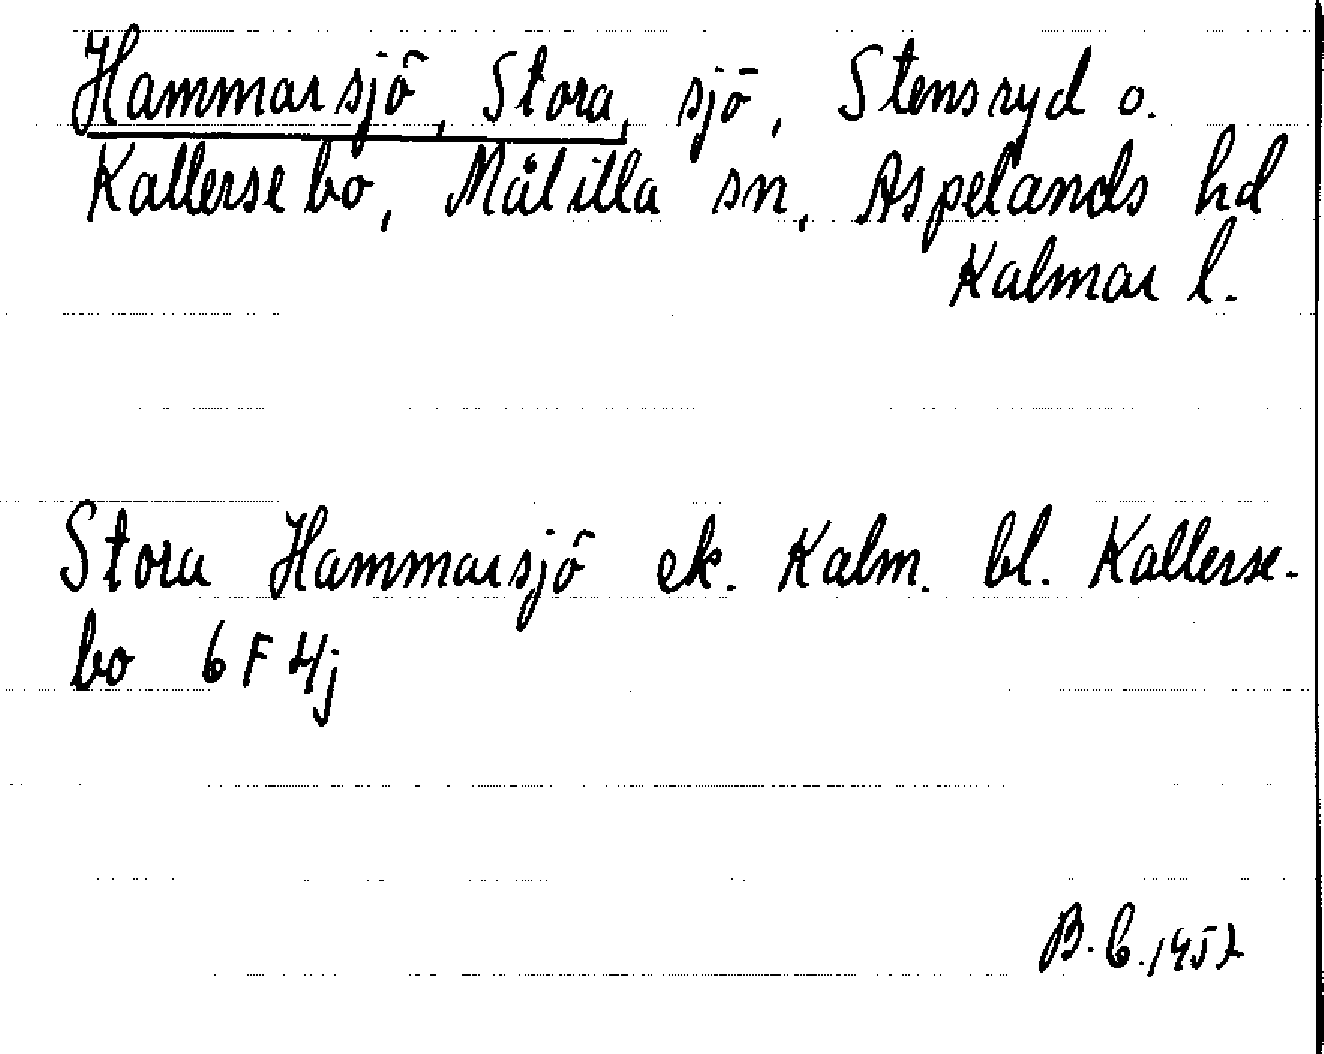 Hammarsjö, Stora, sjö, Stensryd o.
Kallersebo, Målilla sn, Aspelands hd
Kalmar l.
Stora Hammarsjö ek. Kalm. bl. Kallerse-
bo 6 F 4j
B. C. 1957